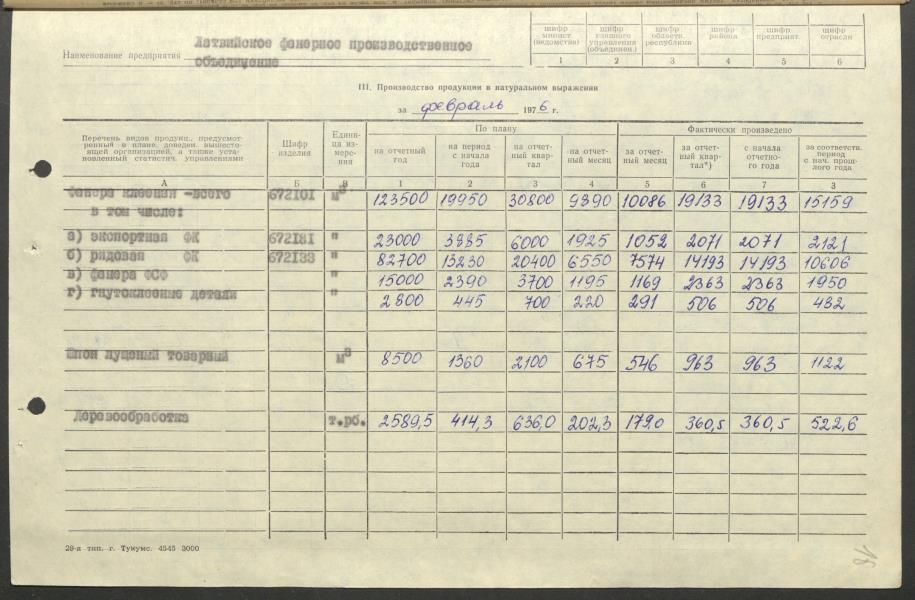 Наименование предприятия Латвийское фанерное производственное
объединение
шифр минист (ведомства) шифр главного управления (объединен.) шифр области, республики шифр района шифр предприят. шифр отрасли
1 2 3 4 5 6
III. Производство продукции в натуральном выражении
за февраль 1976 г.
Перечень видов продукц., предусмотренный в плане, доведен. вышестоящей организацией, а также установленный статистич. управлениями Шифр изделия Единица измерения По плану Фактически произведено
на отчетный год на период с начала года на отчетный квартал на отчетный месяц за отчетный месяц за отчет. квартал*) с начала отчетного года за соответств. период с нач. прошлого года
А Б В 1 2 3 4 5 6 7 8
Фанера клееная -всего 672101 м3 123500 19950 30800 9890 10086 19133 19133 15159
в том числе:
а) экспортная ФК 672131 " 23000 3885 6000 1925 1052 2071 2071 2121
б) рядовая ФК 672133 " 82700 13230 20400 6550 7574 14193 14193 10606
в) фанера ФСФ " 15000 2390 3700 1195 1169 2363 2363 1950
г) гнутоклееные детали " 2800 445 700 220 291 506 506 482
Шпон лущеный товарный м3 8500 1360 2100 675 546 963 963 1122
Деревообработка т.рб. 2589,5 414,3 636,0 202,3 179.0 360,5 360,5 522,6
28-я тип. г. Тукумс. 4545 3000